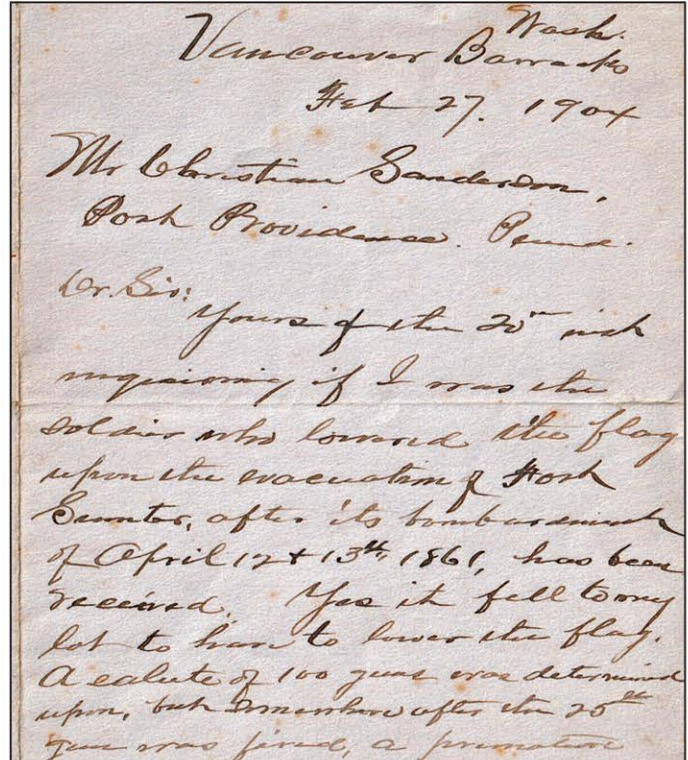 Wash.
Vancouver Barracks
Feb 27. 1904
Mr Christian Sanderson,
Port Providence. Penna.
Dr. Sir:
Yours of the 20" inst
inquiring if I was the
soldier who lowered the flag
upon the evacuation of Fort
Sumter, after its bombardment
of April 12 & 13th, 1861, has been
received. Yes it fell to my
lot to have to lower the flag.
A salute of 100 guns was determined
upon, but somewhere after the 25th
gun was fired, a premature